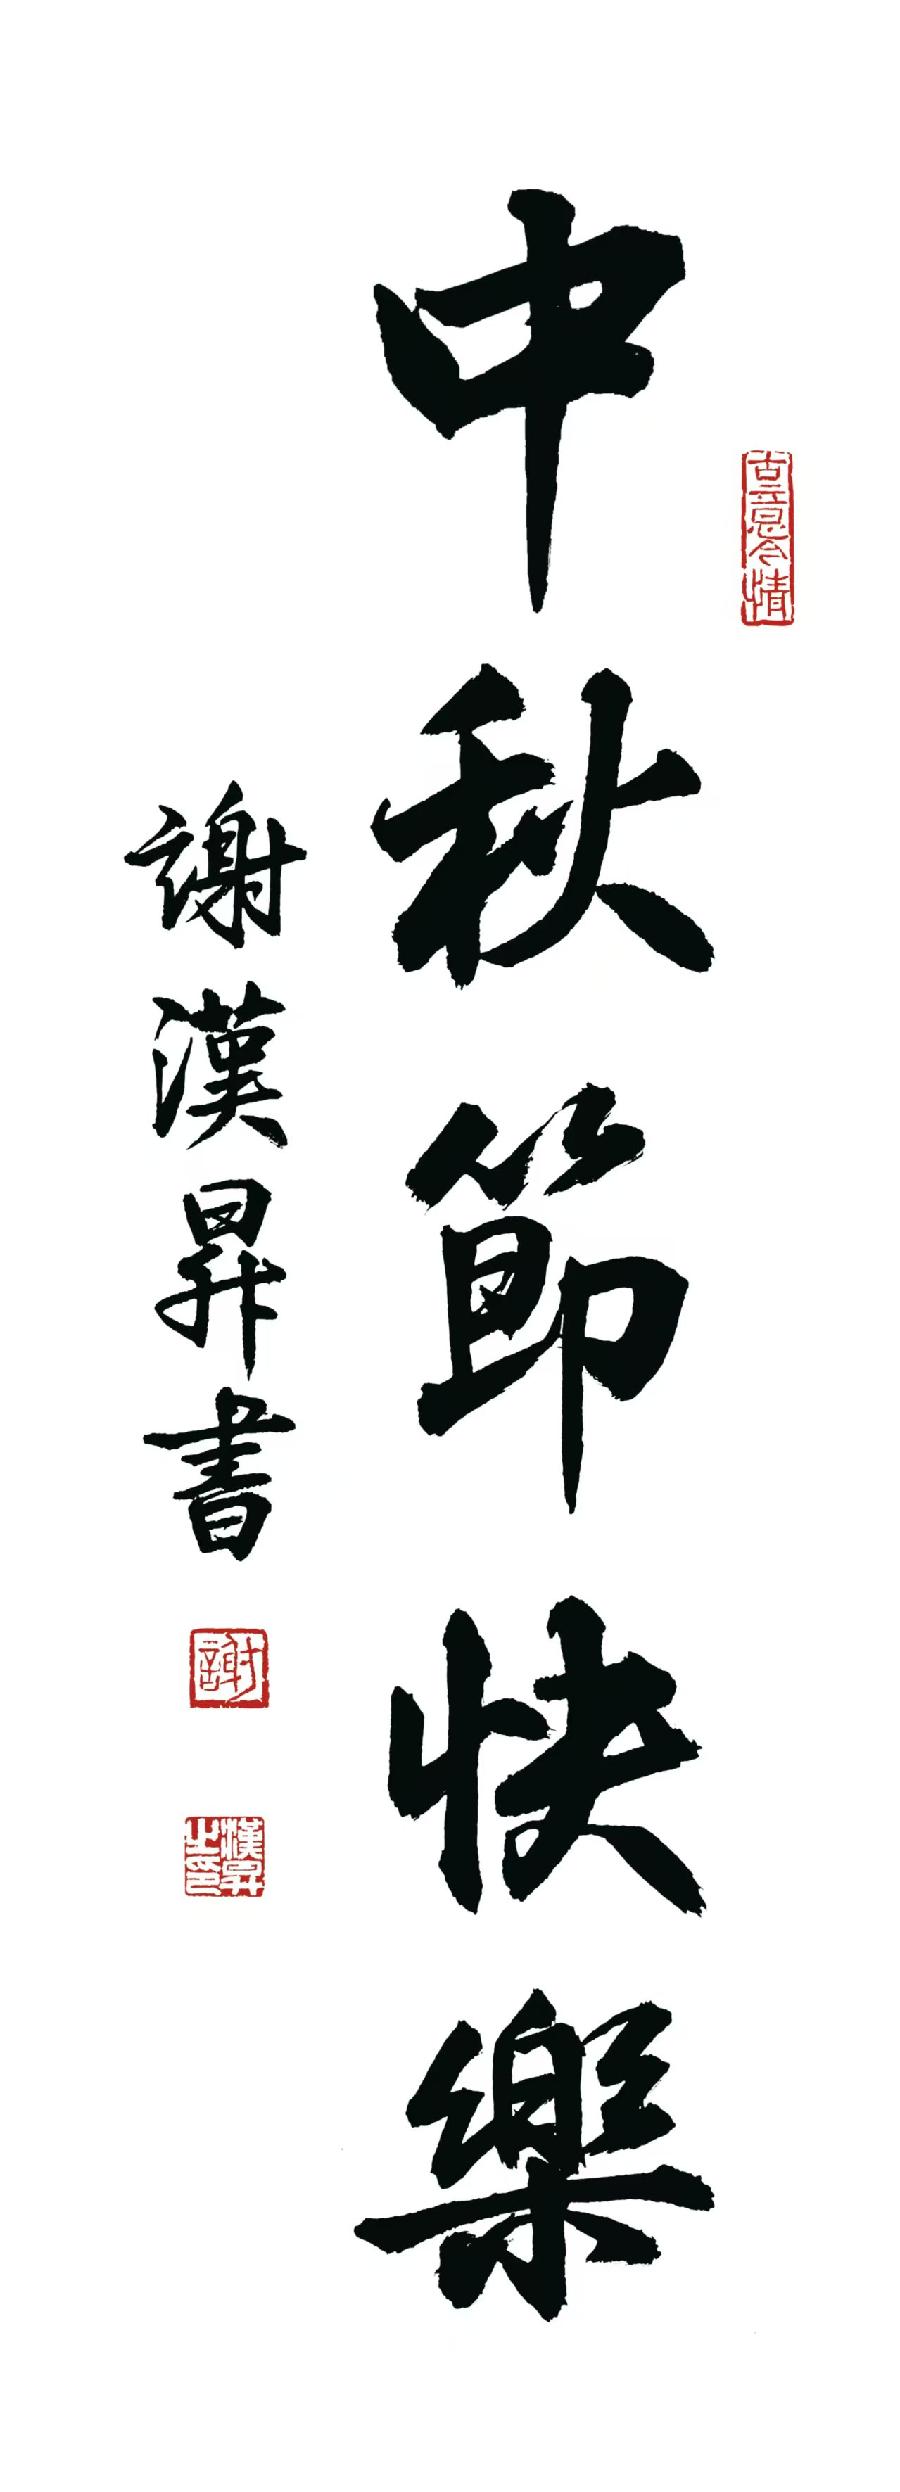 中秋節快樂
古意今情
謝漢昇書
謝
漢昇之印